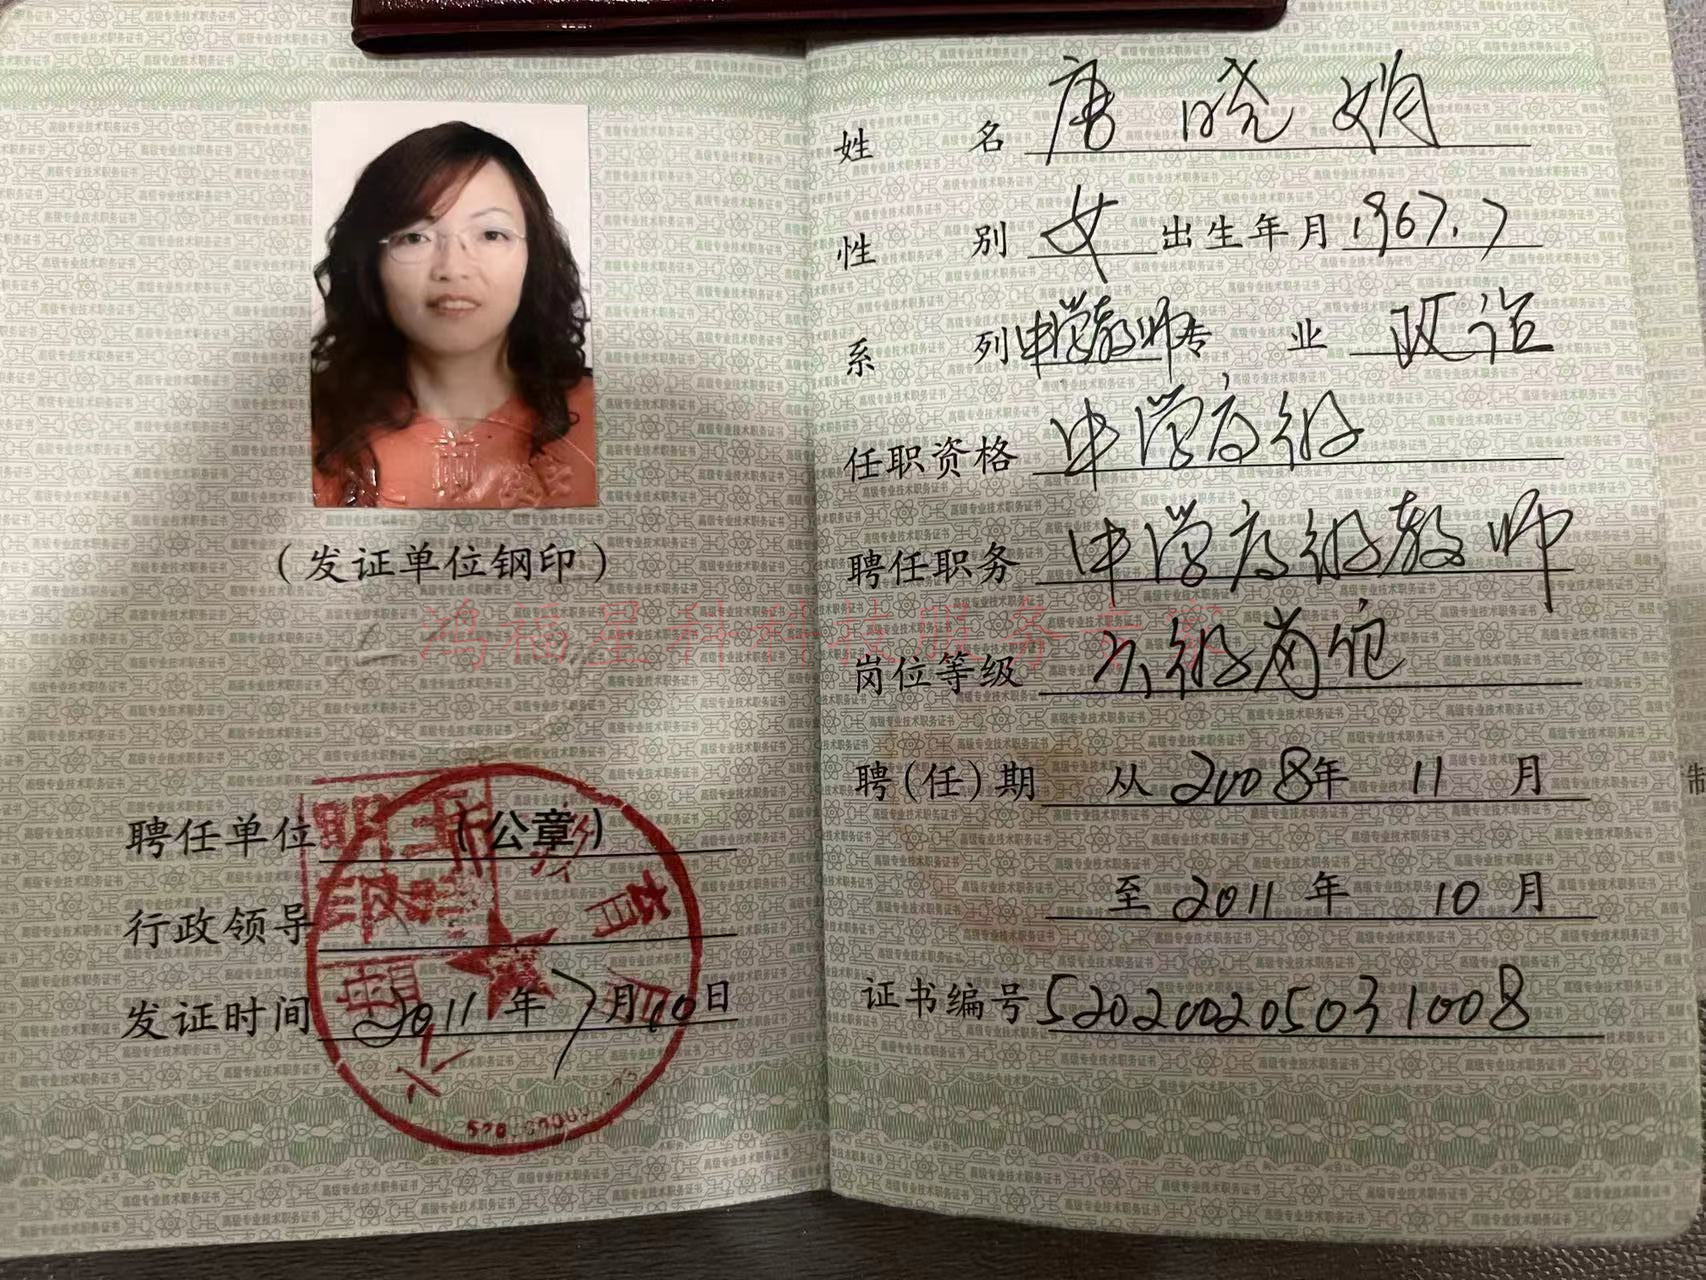 （发证单位钢印）
聘任单位（公章）
行政领导
发证时间 2011年7月10日
姓 名 唐晓娟
性 别 女 出生年月 1967.7
系 列 中学教师 专 业 政治
任职资格 中学高级
聘任职务 中学高级教师
岗位等级 六级岗位
聘(任)期 从2008年 11 月
至2011年 10月
证书编号 520200205031008